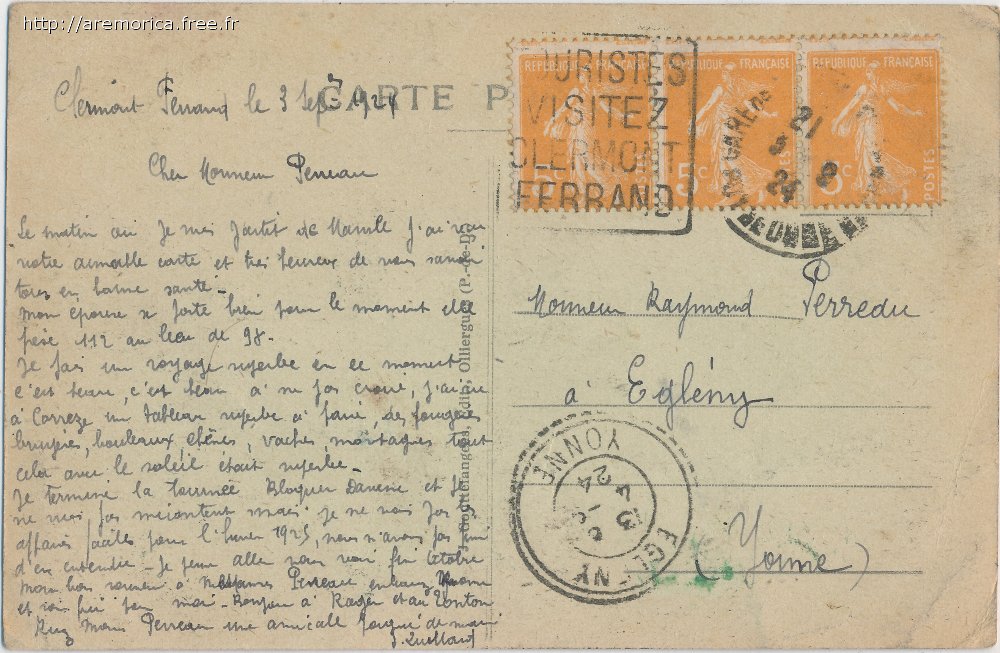 http://aremorica.free.fr
CARTE P
Clermont Ferrand le 3 Sept 1924
Cher Monsieur Perreau
Le matin où Je suis partit de J'ai reçu
votre aimable carte et très heureux de vous savoir
tous en bonne santé
mon épouse se porte bien pour le moment elle
pèse 112 au lieu de 98.
Je fais un voyage superbe en ce moment
c'est beau, c'est beau à ne pas croire, j'ai vu
à Corrèze un tableau superbe à faire, des fougères
bruyères, bouleaux chênes, vaches montagnes tout
cela avec le soleil était superbe
Je termine la tournée et je
ne suis pas mécontent mais je ne vois pas
affaires faciles pour l'hiver 1925, nous n'avons pas fini
d'en entendre - Je pense aller vous voir fin Octobre
mon bon souvenir à Perreau
et - Bonjour à Roger et au Tonton
Perreau une amicale poignée de main
Coquelangeas, édit., Olliergues (P.-de-D.)
REPUBLIQUE FRANÇAISE
REPUBLIQUE FRANÇAISE
REPUBLIQUE FRANÇAISE
5c
5c
POSTES
OURISTES
VISITEZ
CLERMONT
FERRAND
21
3 8
24
Monsieur Raymond Perreau
à Eglény
(Yonne)
EGLENY
YONNE
24